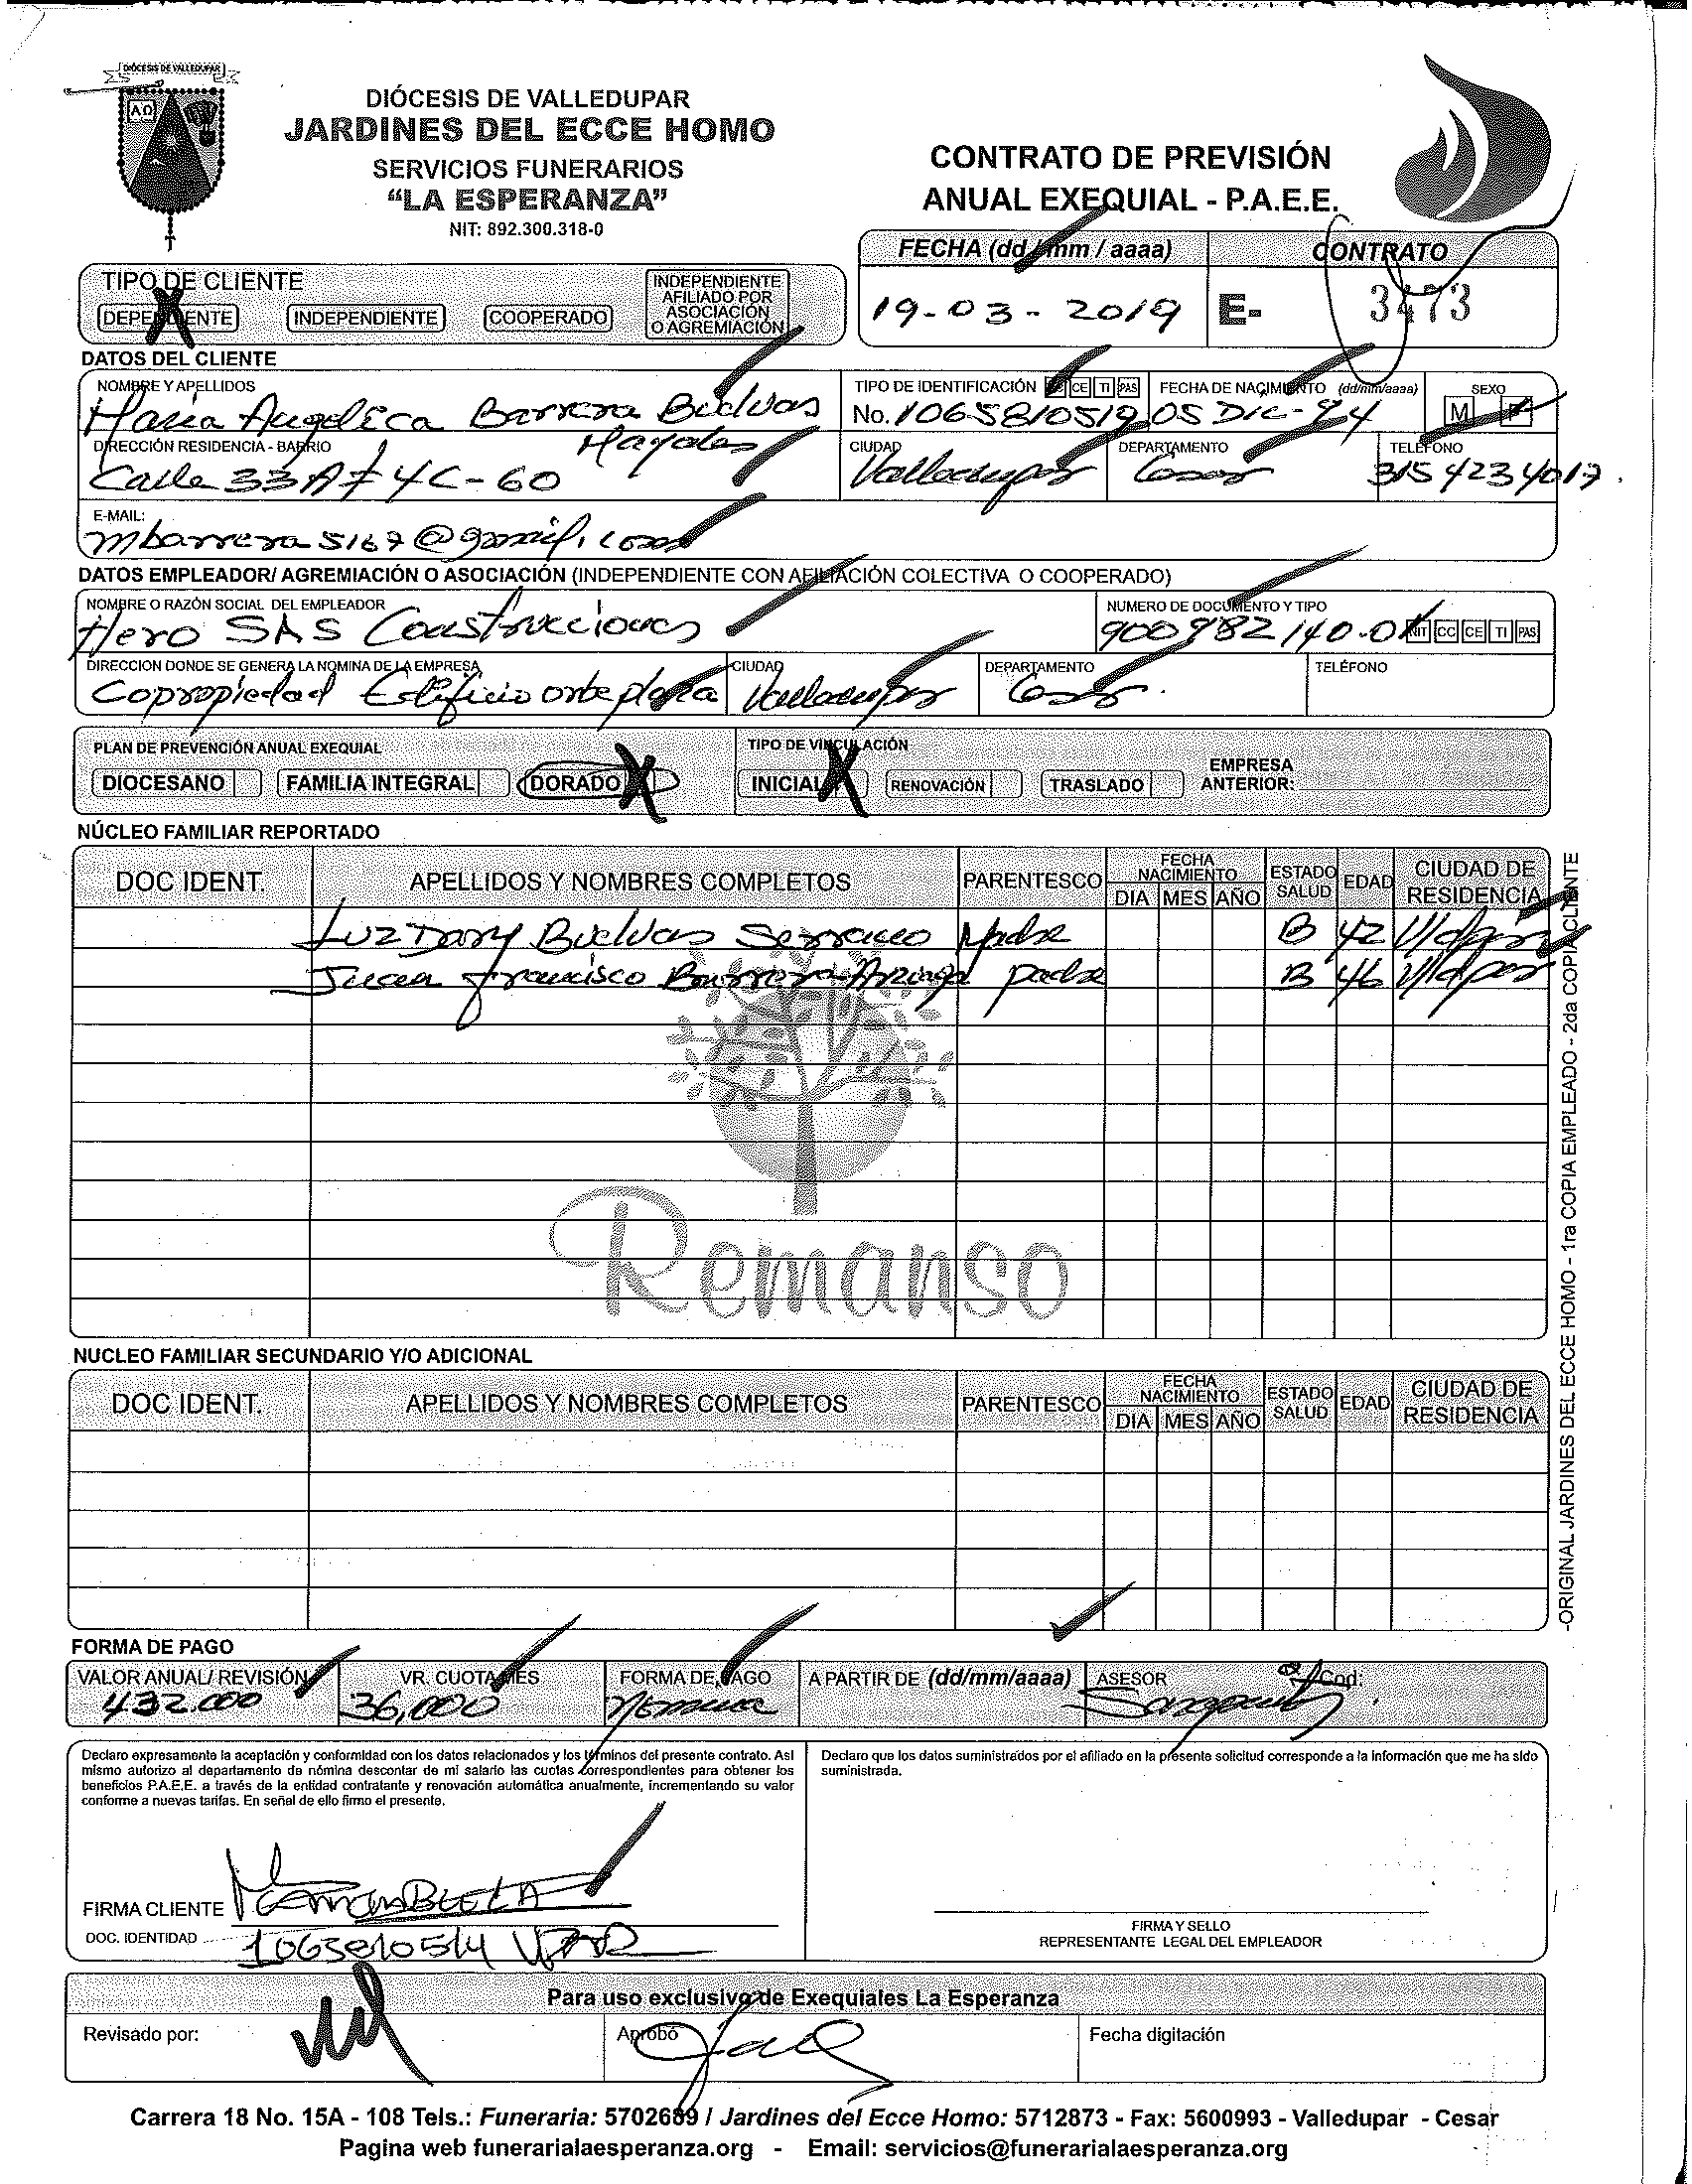 DIÓCESIS DE VALLEDUPAR
ΑΩ
DIÓCESIS DE VALLEDUPAR
JARDINES DEL ECCE HOMO
SERVICIOS FUNERARIOS
“LA ESPERANZA”
NIT: 892.300.318-0
CONTRATO DE PREVISIÓN
ANUAL EXEQUIAL - P.A.E.E.
FECHA (dd / mm / aaaa) CONTRATO
19-03-2019 E- 3473
TIPO DE CLIENTE
DEPENDIENTE INDEPENDIENTE COOPERADO INDEPENDIENTE AFILIADO POR ASOCIACIÓN O AGREMIACIÓN
DATOS DEL CLIENTE
NOMBRE Y APELLIDOS TIPO DE IDENTIFICACIÓN CE TI PAS FECHA DE NACIMIENTO (dd/mm/aaaa) SEXO
Maria Angelica Barrera Buelvas No. 1065810519 05 Dic-94 M F
DIRECCIÓN RESIDENCIA - BARRIO CIUDAD DEPARTAMENTO TELÉFONO
Calle 33A # 4C-60 Mayales Valledupar Cesar 3154234017
E-MAIL:
mbarrera5167@gmail.com
DATOS EMPLEADOR/ AGREMIACIÓN O ASOCIACIÓN (INDEPENDIENTE CON AFILIACIÓN COLECTIVA O COOPERADO)
NOMBRE O RAZÓN SOCIAL DEL EMPLEADOR NUMERO DE DOCUMENTO Y TIPO
Hero SAS Construcciones 900982140-0 NIT CC CE TI PAS
DIRECCION DONDE SE GENERA LA NOMINA DE LA EMPRESA CIUDAD DEPARTAMENTO TELÉFONO
Copropiedad Edificio orbe plaza Valledupar Cesar.
PLAN DE PREVENCIÓN ANUAL EXEQUIAL TIPO DE VINCULACIÓN
DIOCESANO FAMILIA INTEGRAL DORADO INICIAL RENOVACIÓN TRASLADO EMPRESA ANTERIOR:
NÚCLEO FAMILIAR REPORTADO
DOC IDENT. APELLIDOS Y NOMBRES COMPLETOS PARENTESCO FECHA NACIMIENTO DIA MES AÑO ESTADO SALUD EDAD CIUDAD DE RESIDENCIA
Luz Dary Buelvas Serrano Madre B 42 V/dpar
Juan Francisco Barrera Arziaga padre B 46 V/dpar
Remanso
NUCLEO FAMILIAR SECUNDARIO Y/O ADICIONAL
DOC IDENT. APELLIDOS Y NOMBRES COMPLETOS PARENTESCO FECHA NACIMIENTO DIA MES AÑO ESTADO SALUD EDAD CIUDAD DE RESIDENCIA
-ORIGINAL JARDINES DEL ECCE HOMO - 1ra COPIA EMPLEADO - 2da COPIA CLIENTE
FORMA DE PAGO
VALOR ANUAL/ REVISIÓN VR. CUOTA MES FORMA DE PAGO A PARTIR DE (dd/mm/aaaa) ASESOR Cod:
432.000 36,000 Nomina
Declaro expresamente la aceptación y conformidad con los datos relacionados y los términos del presente contrato. Así
mismo autorizo al departamento de nómina descontar de mi salario las cuotas correspondientes para obtener los
beneficios P.A.E.E. a través de la entidad contratante y renovación automática anualmente, incrementando su valor
conforme a nuevas tarifas. En señal de ello firmo el presente.
Declaro que los datos suministrados por el afiliado en la presente solicitud corresponde a la información que me ha sido
suministrada.
FIRMA CLIENTE
DOC. IDENTIDAD 1065810514 VPAR
FIRMA Y SELLO
REPRESENTANTE LEGAL DEL EMPLEADOR
Para uso exclusivo de Exequiales La Esperanza
Revisado por: Aprobó Fecha digitación
Carrera 18 No. 15A - 108 Tels.: Funeraria: 5702689 / Jardines del Ecce Homo: 5712873 - Fax: 5600993 - Valledupar - Cesar
Pagina web funerarialaesperanza.org - Email: servicios@funerarialaesperanza.org